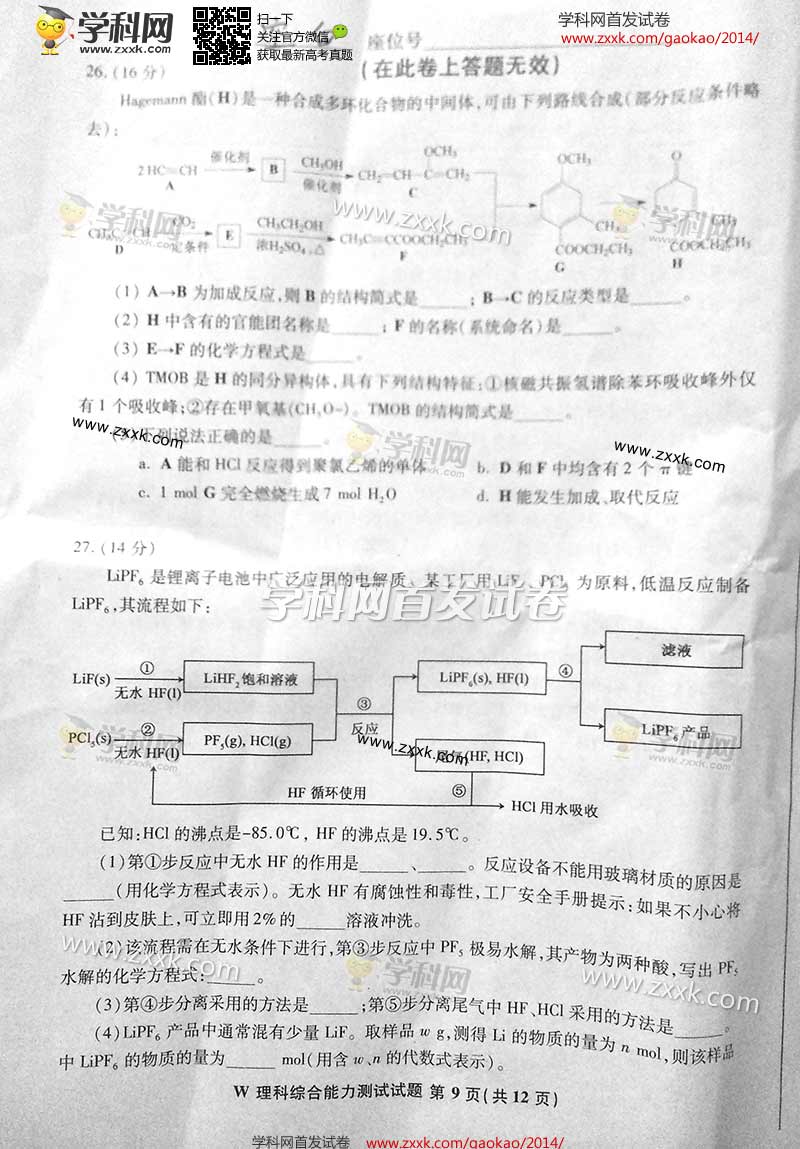 学科网
www.zxxk.com
扫一下
关注官方微信
获取最新高考真题
学科网首发试卷
www.zxxk.com/gaokao/2014/
座位号
(在此卷上答题无效)
26.(16 分)
Hagemann 酯(H)是一种合成多环化合物的中间体,可由下列路线合成(部分反应条件略
去):
2HC≡CH
A
催化剂
B
CH₃OH
催化剂
CH₂=CH-C=CH₂
OCH₃
C
D
CO₂
定条件
E
CH₃CH₂OH
浓H₂SO₄,△
CH₃C≡CCOOCH₂CH₃
F
OCH₃
COOCH₂CH₃
G
O
COOCH₂CH₃
H
(1) A→B 为加成反应,则 B 的结构简式是______;B→C 的反应类型是______。
(2) H 中含有的官能团名称是______;F 的名称(系统命名)是______。
(3) E→F 的化学方程式是______。
(4) TMOB 是 H 的同分异构体,具有下列结构特征:①核磁共振氢谱除苯环吸收峰外仅
有 1 个吸收峰;②存在甲氧基(CH₃O-)。TMOB 的结构简式是______。
下列说法正确的是______。
a. A 能和 HCl 反应得到聚氯乙烯的单体 b. D 和 F 中均含有 2 个 π 键
c. 1 mol G 完全燃烧生成 7 mol H₂O d. H 能发生加成、取代反应
27.(14 分)
LiPF₆ 是锂离子电池中广泛应用的电解质。某工厂用 LiF、PCl₅ 为原料,低温反应制备
LiPF₆,其流程如下:
LiF(s) ① 无水 HF(l) LiHF₂饱和溶液
PCl₅(s) ② 无水 HF(l) PF₅(g), HCl(g)
③ 反应
LiPF₆(s), HF(l)
④
滤液
LiPF₆ 产品
尾气(HF, HCl)
⑤
HF 循环使用
HCl 用水吸收
已知:HCl 的沸点是-85.0℃, HF 的沸点是 19.5℃。
(1)第①步反应中无水 HF 的作用是______、______。反应设备不能用玻璃材质的原因是
______(用化学方程式表示)。无水 HF 有腐蚀性和毒性,工厂安全手册提示:如果不小心将
HF 沾到皮肤上,可立即用 2% 的______溶液冲洗。
(2)该流程需在无水条件下进行,第③步反应中 PF₅ 极易水解,其产物为两种酸,写出 PF₅
水解的化学方程式:______。
(3)第④步分离采用的方法是______;第⑤步分离尾气中 HF、HCl 采用的方法是______。
(4)LiPF₆ 产品中通常混有少量 LiF。取样品 w g,测得 Li 的物质的量为 n mol,则该样品
中 LiPF₆ 的物质的量为______ mol(用含 w、n 的代数式表示)。
W 理科综合能力测试试题 第 9 页(共 12 页)
学科网首发试卷
www.zxxk.com/gaokao/2014/